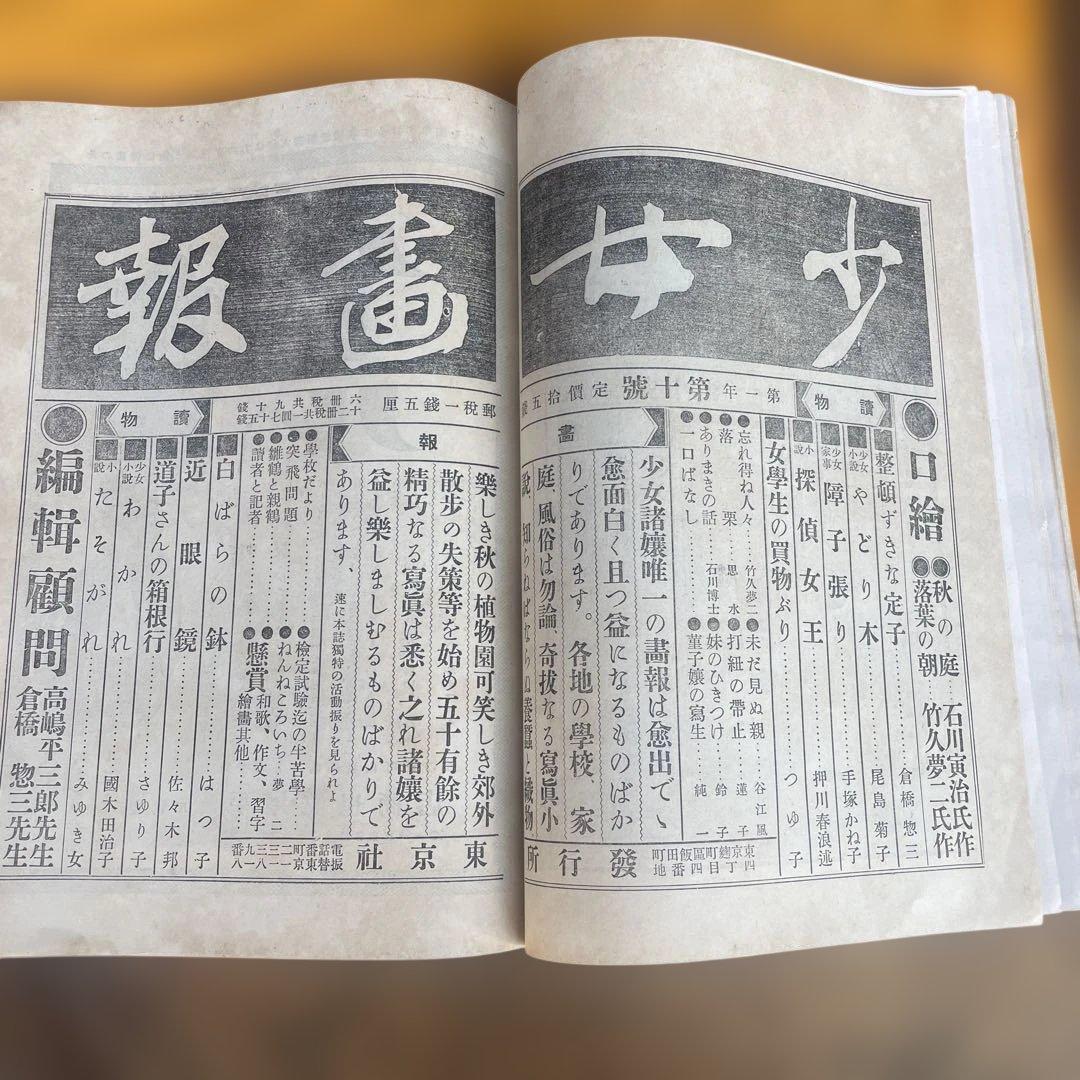 少女畫報
第一年 第十號 定價拾五錢
郵税一錢五厘
六冊税共九十錢
十二冊税共一圓七十五錢
口繪
秋の庭 石川寅治氏作
落葉の朝 竹久夢二氏作
讀物
整頓ずきな定子 倉橋惣三
少女小説 やどり木 尾島菊子
少女家事 障子張り 手塚かね子
小説 探偵女王 押川春浪述
女學生の買物ぶり つゆ子
忘れ得ね人々 竹久夢二
落栗 思水
ありまきの話 石川博士
一口ばなし
未だ見ぬ親 谷江風
打紐の帶止 蓮子
妹のひきつけ 鈴子
菫子孃の寫生 純一
畫報
少女諸孃唯一の畫報は愈出でゝ
愈面白く且つ益になるものばか
りであります。各地の學校、家
庭、風俗は勿論、奇拔なる寫眞小
説、知らねばならぬ養蠶と織物
樂しき秋の植物園可笑しき郊外
散歩の失策等を始め五十有餘の
精巧なる寫眞は悉く之れ諸孃を
益し樂しましむるものばかりで
あります、 速に本誌獨特の活動振りを見られよ
學校だより
突飛問題
雛鶴と親鶴
讀者と記者
檢定試驗迄の半苦學
ねんねころいち 夢二
懸賞 和歌、作文、習字
繪畫其他
讀物
白ばらの鉢 はつ子
近眼鏡 佐々木邦
道子さんの箱根行 さゆり子
少女小説 わかれ 國木田治子
小説 たそがれ みゆき女
編輯顧問 高嶋平三郎先生
倉橋惣三先生
發行所
東京麹町區飯田町
四丁目四番地
東京社
電話番町二三三九番
振替東京一一八一八